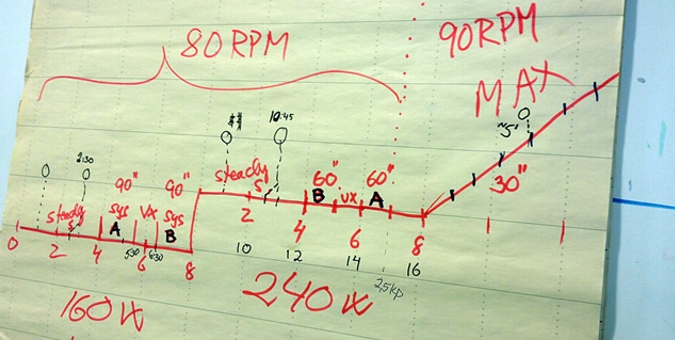 80 RPM
90 RPM
MAX
10:45
~5'
2:30
steady
5'
90" 90"
steady
5'
60" 60"
30"
sys VX sys
A B
B VX A
0 2 4 5:30 6 6:30 8
2 4 6 8
10 12 14 16
2,5kp
160 W
240 W